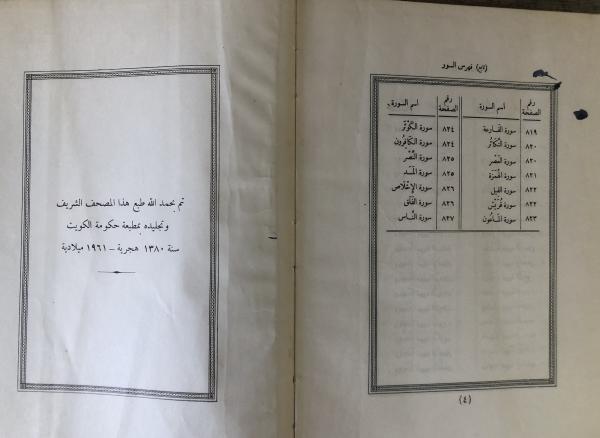 (تابع) فهرس السور
رقم الصفحة اسم السورة رقم الصفحة اسم السورة
٨١٩ سورة القارعة ٨٢٤ سورة الكوثر
٨٢٠ سورة التكاثر ٨٢٤ سورة الكافرون
٨٢٠ سورة العصر ٨٢٥ سورة النصر
٨٢١ سورة الهمزة ٨٢٥ سورة المسد
٨٢٢ سورة الفيل ٨٢٦ سورة الإخلاص
٨٢٢ سورة قريش ٨٢٦ سورة الفلق
٨٢٣ سورة الماعون ٨٢٧ سورة الناس
(٤)
تم بحمد الله طبع هذا المصحف الشريف
وتجليده بمطبعة حكومة الكويت
سنة ١٣٨٠ هجرية – ١٩٦١ ميلادية